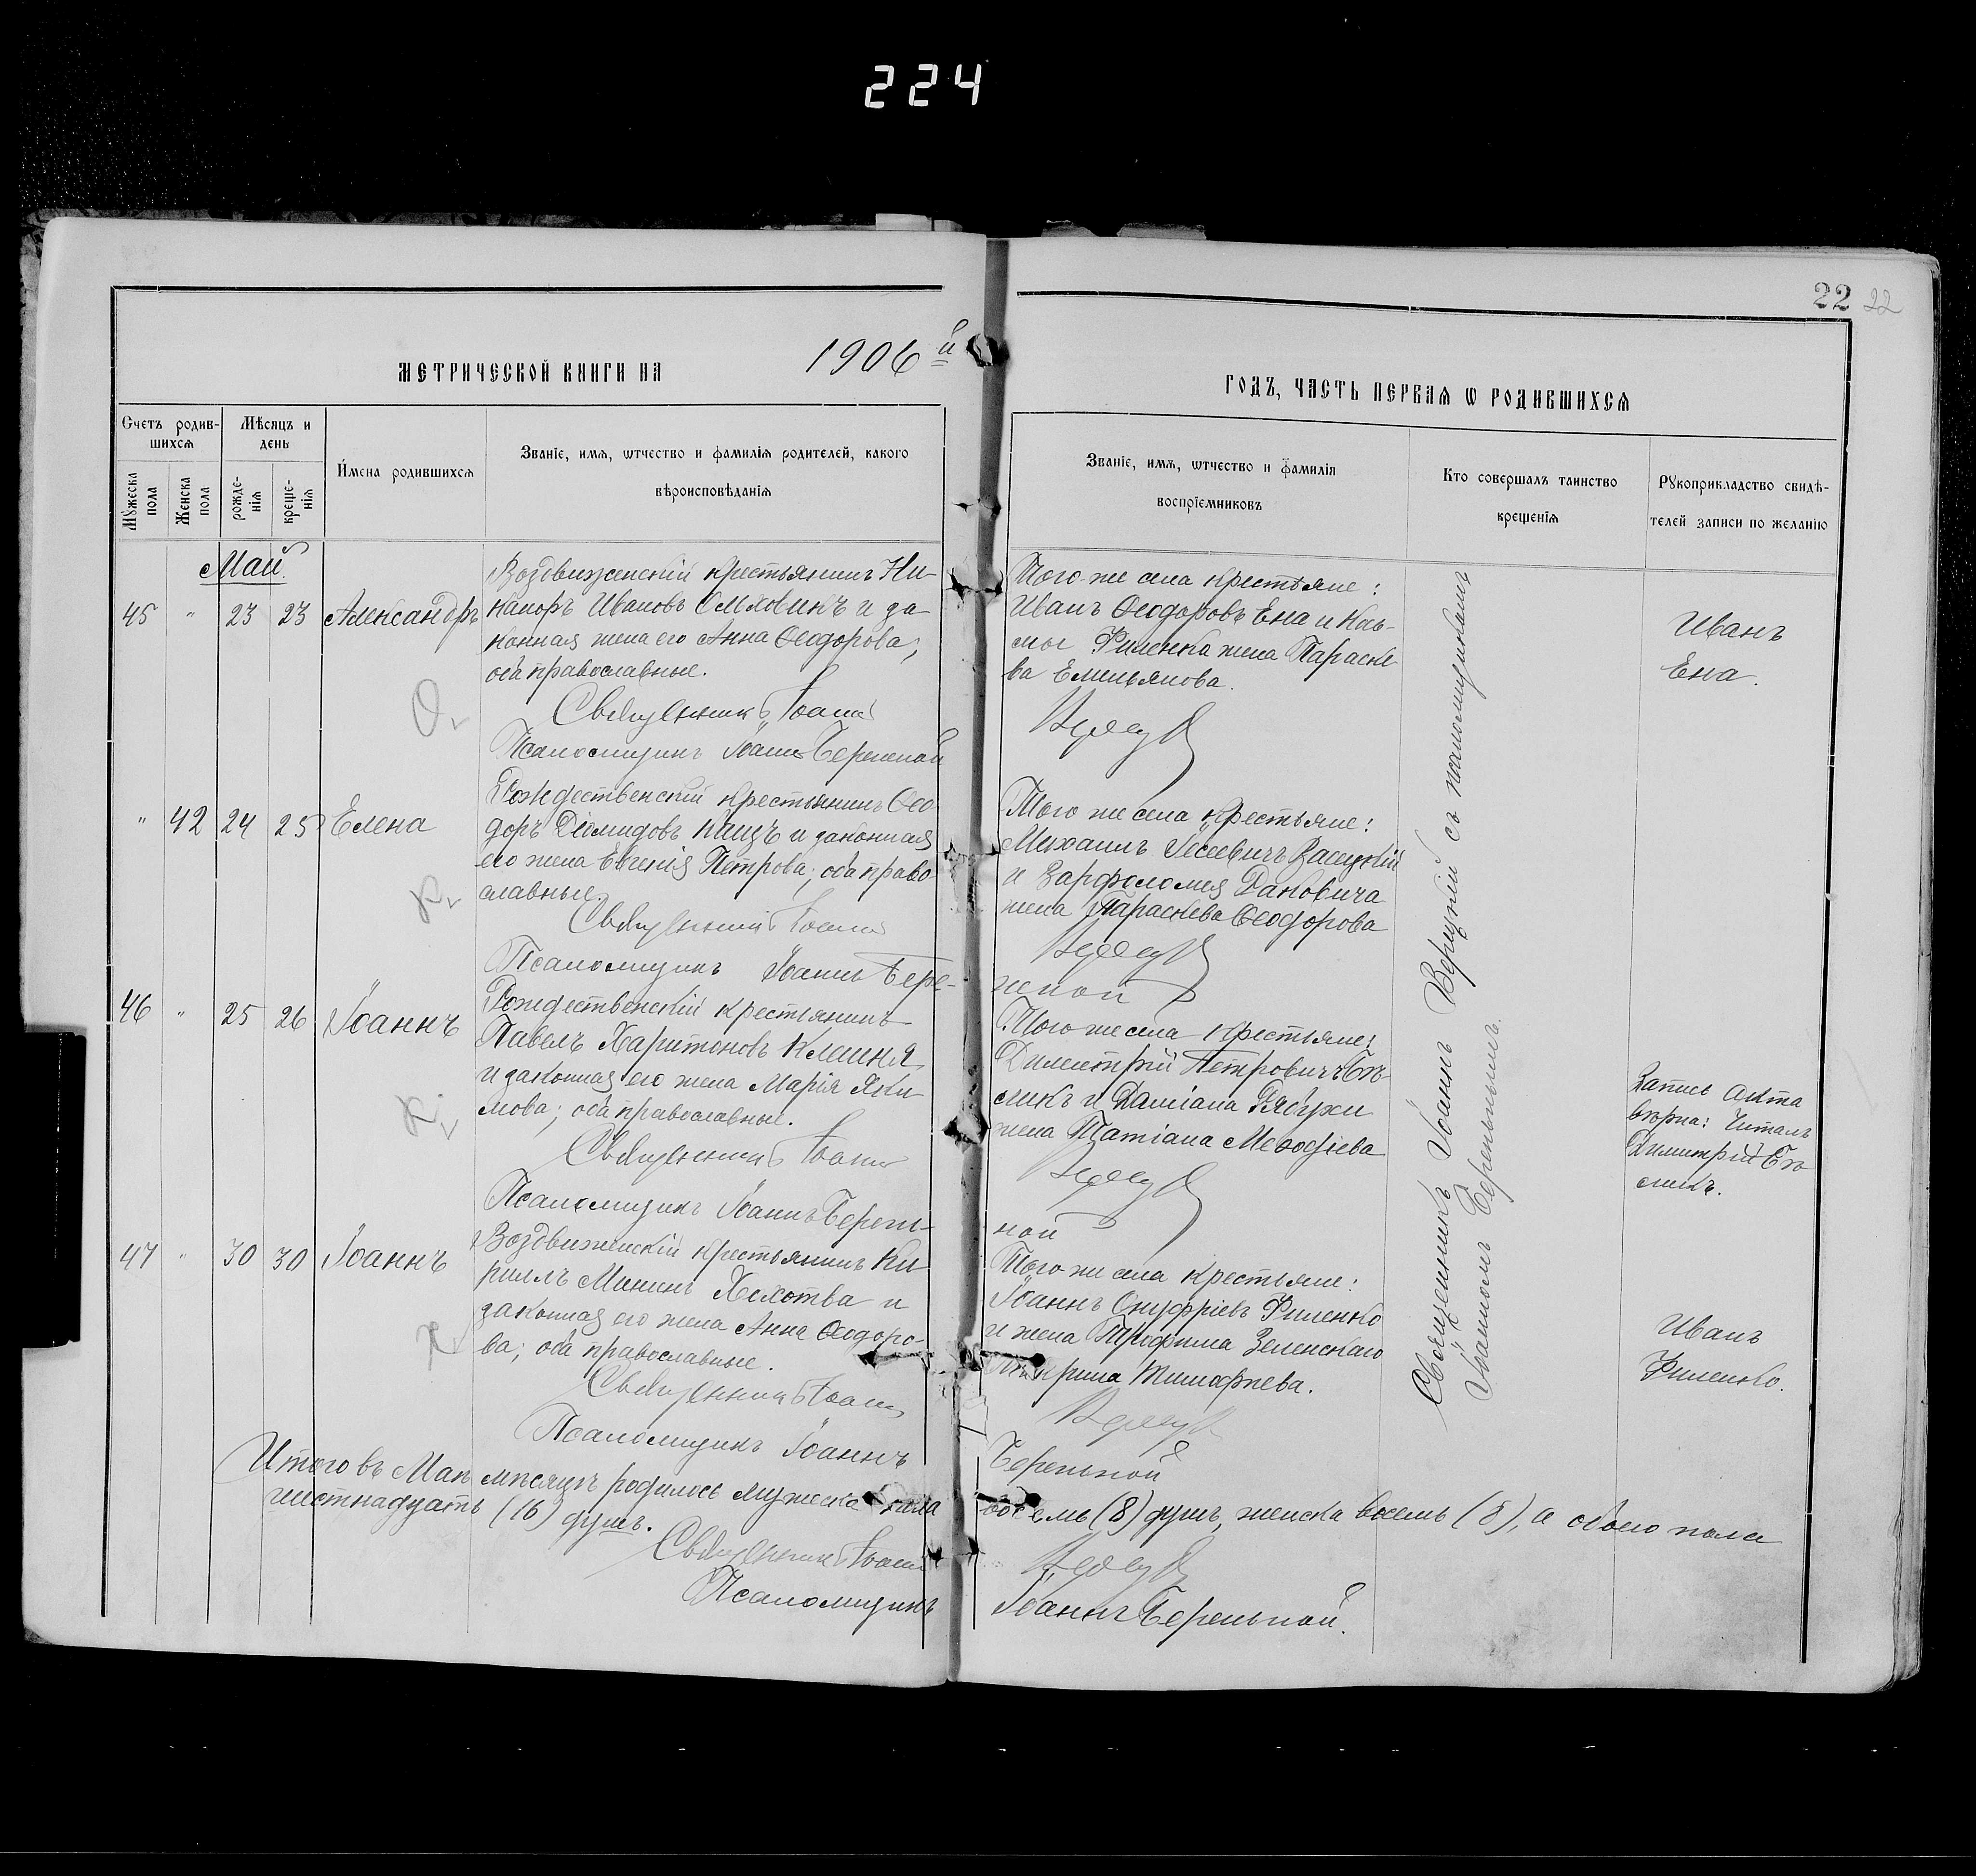 224
22 22
МЕТРИЧЕСКОЙ КНИГИ НА 1906й
ГОДЪ, ЧАСТЬ ПЕРВАЯ Ѡ РОДИВШИХСЯ
Счетъ родив-
шихся
Мужеска пола
Женска пола
Мѣсяцъ и
день
рожде-
нія
креще-
нія
Имена родившихся
Званіе, имя, ѡтчество и фамилія родителей, какого
вѣроисповѣданія
Званіе, имя, ѡтчество и фамилія
воспріемниковъ
Кто совершалъ таинство
крещенія
Рукоприкладство свидѣ-
телей записи по желанію
Май
45 " 23 23 Александръ
Воздвиженскій крестьянинъ Ни-
каноръ Ивановъ Ольховикъ и за
конная жена его Анна Ѳеодорова;
оба православные.
Священникъ Іоаннъ
Псаломщикъ Іоаннъ Береньной
Того же села крестьяне:
Иванъ Ѳеодоровъ Ена и Кось-
мы Филенка жена Параске
ва Емельянова.
Иванъ
Ена.
" 42 24 25 Елена
Рождественскій крестьянинъ Ѳео
доръ Діомидовъ Кицъ и законная
его жена Евгенія Петрова; оба право
славные.
Священникъ Іоаннъ
Псаломщикъ Іоаннъ Бере-
Того же села крестьяне:
Михаилъ Засецкій
и Варфоломея Даковича
жена Параскева Ѳеодорова
ньной
46 " 25 26 Іоаннъ
Рождественскій крестьянинъ
Павелъ Харитоновъ Клешня
и законная его жена Марія Яки
мова; оба православные.
Священникъ Іоаннъ
Псаломщикъ Іоаннъ Берень-
Того же села крестьяне:
Димитрій Петровичъ Бѣ-
ликъ и Даміана Рябухи
жена Татіана Меѳодіева
ной
Запись акта
вѣрна: Читалъ
Димитрій Бѣ
ликъ.
47 " 30 30 Іоаннъ
Воздвиженскій крестьянинъ Ки
риллъ Мининъ Хехотва и
законная его жена Анна Ѳеодоро-
ва; оба православные.
Священникъ Іоаннъ
Псаломщикъ Іоаннъ
Того же села крестьяне:
Іоаннъ Онуфріевъ Филенко
и жена Трофима Зеленскаго
Тимофеева.
Береньной
Иванъ
Филенко.
Священникъ Іоаннъ Верицкій съ псаломщикомъ
Іоанномъ Береньнымъ.
Итого въ Маѣ мѣсяцѣ родилось мужеска пола восемь (8) душъ, женска восемь (8), а обоего пола
шестнадцать (16) душъ.
Священникъ Іоаннъ
Псаломщикъ Іоаннъ Береньной.